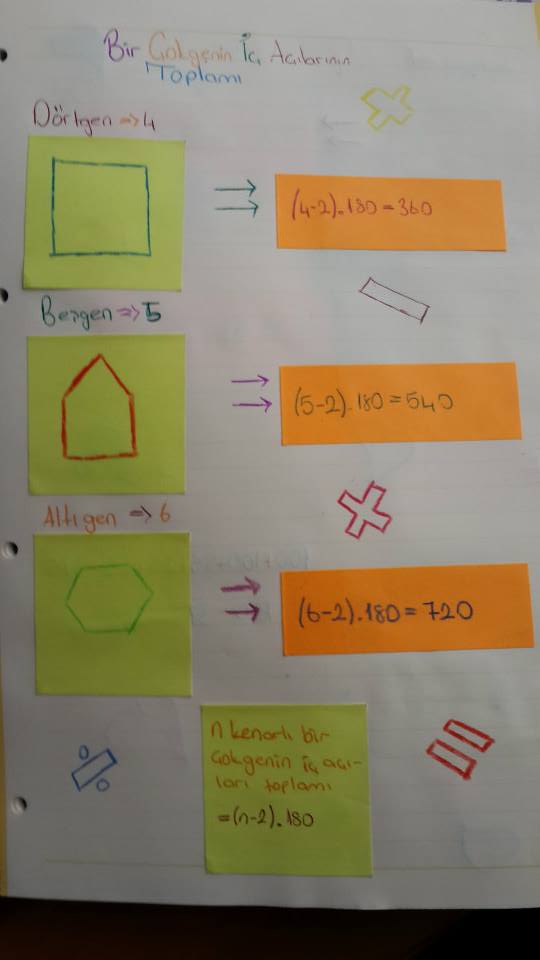 Bir Çokgenin İç Açılarının
Toplamı
Dörtgen => 4
(4-2).180=360
Beşgen => 5
(5-2).180=540
Altıgen => 6
(6-2).180=720
n kenarlı bir
çokgenin iç açı-
ları toplamı
=(n-2).180